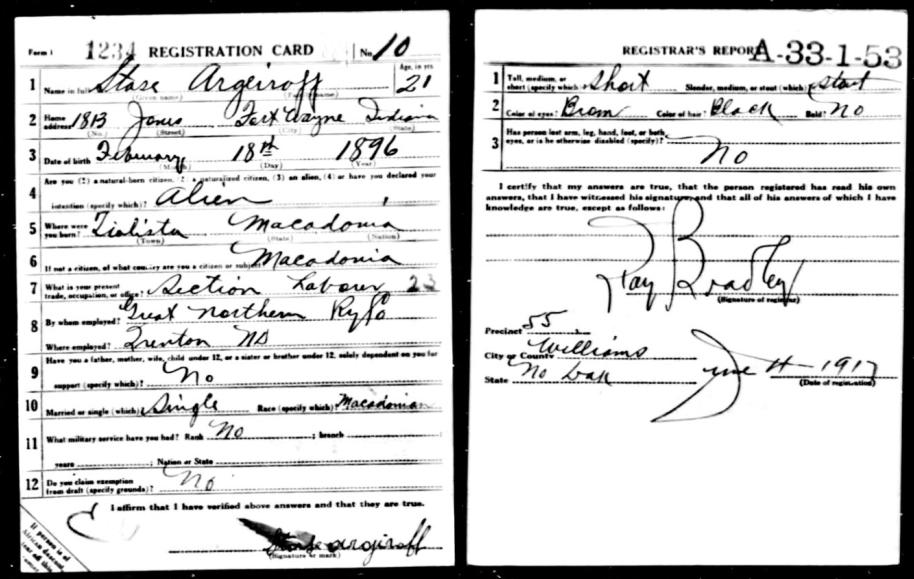 Form 1 1234 REGISTRATION CARD No. 10
Age, in yrs.
1 Name in full Stase Argeiroff 21
(Given name) (Family name)
2 Home address 1813 Jones Fort Wayne Indiana
(No.) (Street) (City) (State)
3 Date of birth February 18th 1896
(Month) (Day) (Year)
4 Are you (1) a natural-born citizen, (2) a naturalized citizen, (3) an alien, (4) or have you declared your
intention (specify which)? Alien
5 Where were you born? Macadonia
(Town) (State) (Nation)
6 If not a citizen, of what country are you a citizen or subject? Macadonia
7 What is your present trade, occupation, or office? Section Labour 23
8 By whom employed? Great Northern Ry Co
Where employed? Trenton ND
9 Have you a father, mother, wife, child under 12, or a sister or brother under 12, solely dependent on you for
support (specify which)? No
10 Married or single (which)? Single Race (specify which)? Macadonian
11 What military service have you had? Rank No ; branch
years ; Nation or State
12 Do you claim exemption from draft (specify grounds)? No
I affirm that I have verified above answers and that they are true.
Stase Argiroff
(Signature or mark)
If person is of
African descent,
REGISTRAR'S REPORT A-33-1-53
1 Tall, medium, or short (specify which)? Short Slender, medium, or stout (which)? Stout
2 Color of eyes? Brown Color of hair? Black Bald? No
3 Has person lost arm, leg, hand, foot, or both eyes, or is he otherwise disabled (specify)?
No
I certify that my answers are true, that the person registered has read his own
answers, that I have witnessed his signature, and that all of his answers of which I have
knowledge are true, except as follows:
Ray Bradley
(Signature of registrar)
Precinct 55
City or County Williams
State No Dak June 4 - 1917
(Date of registration)